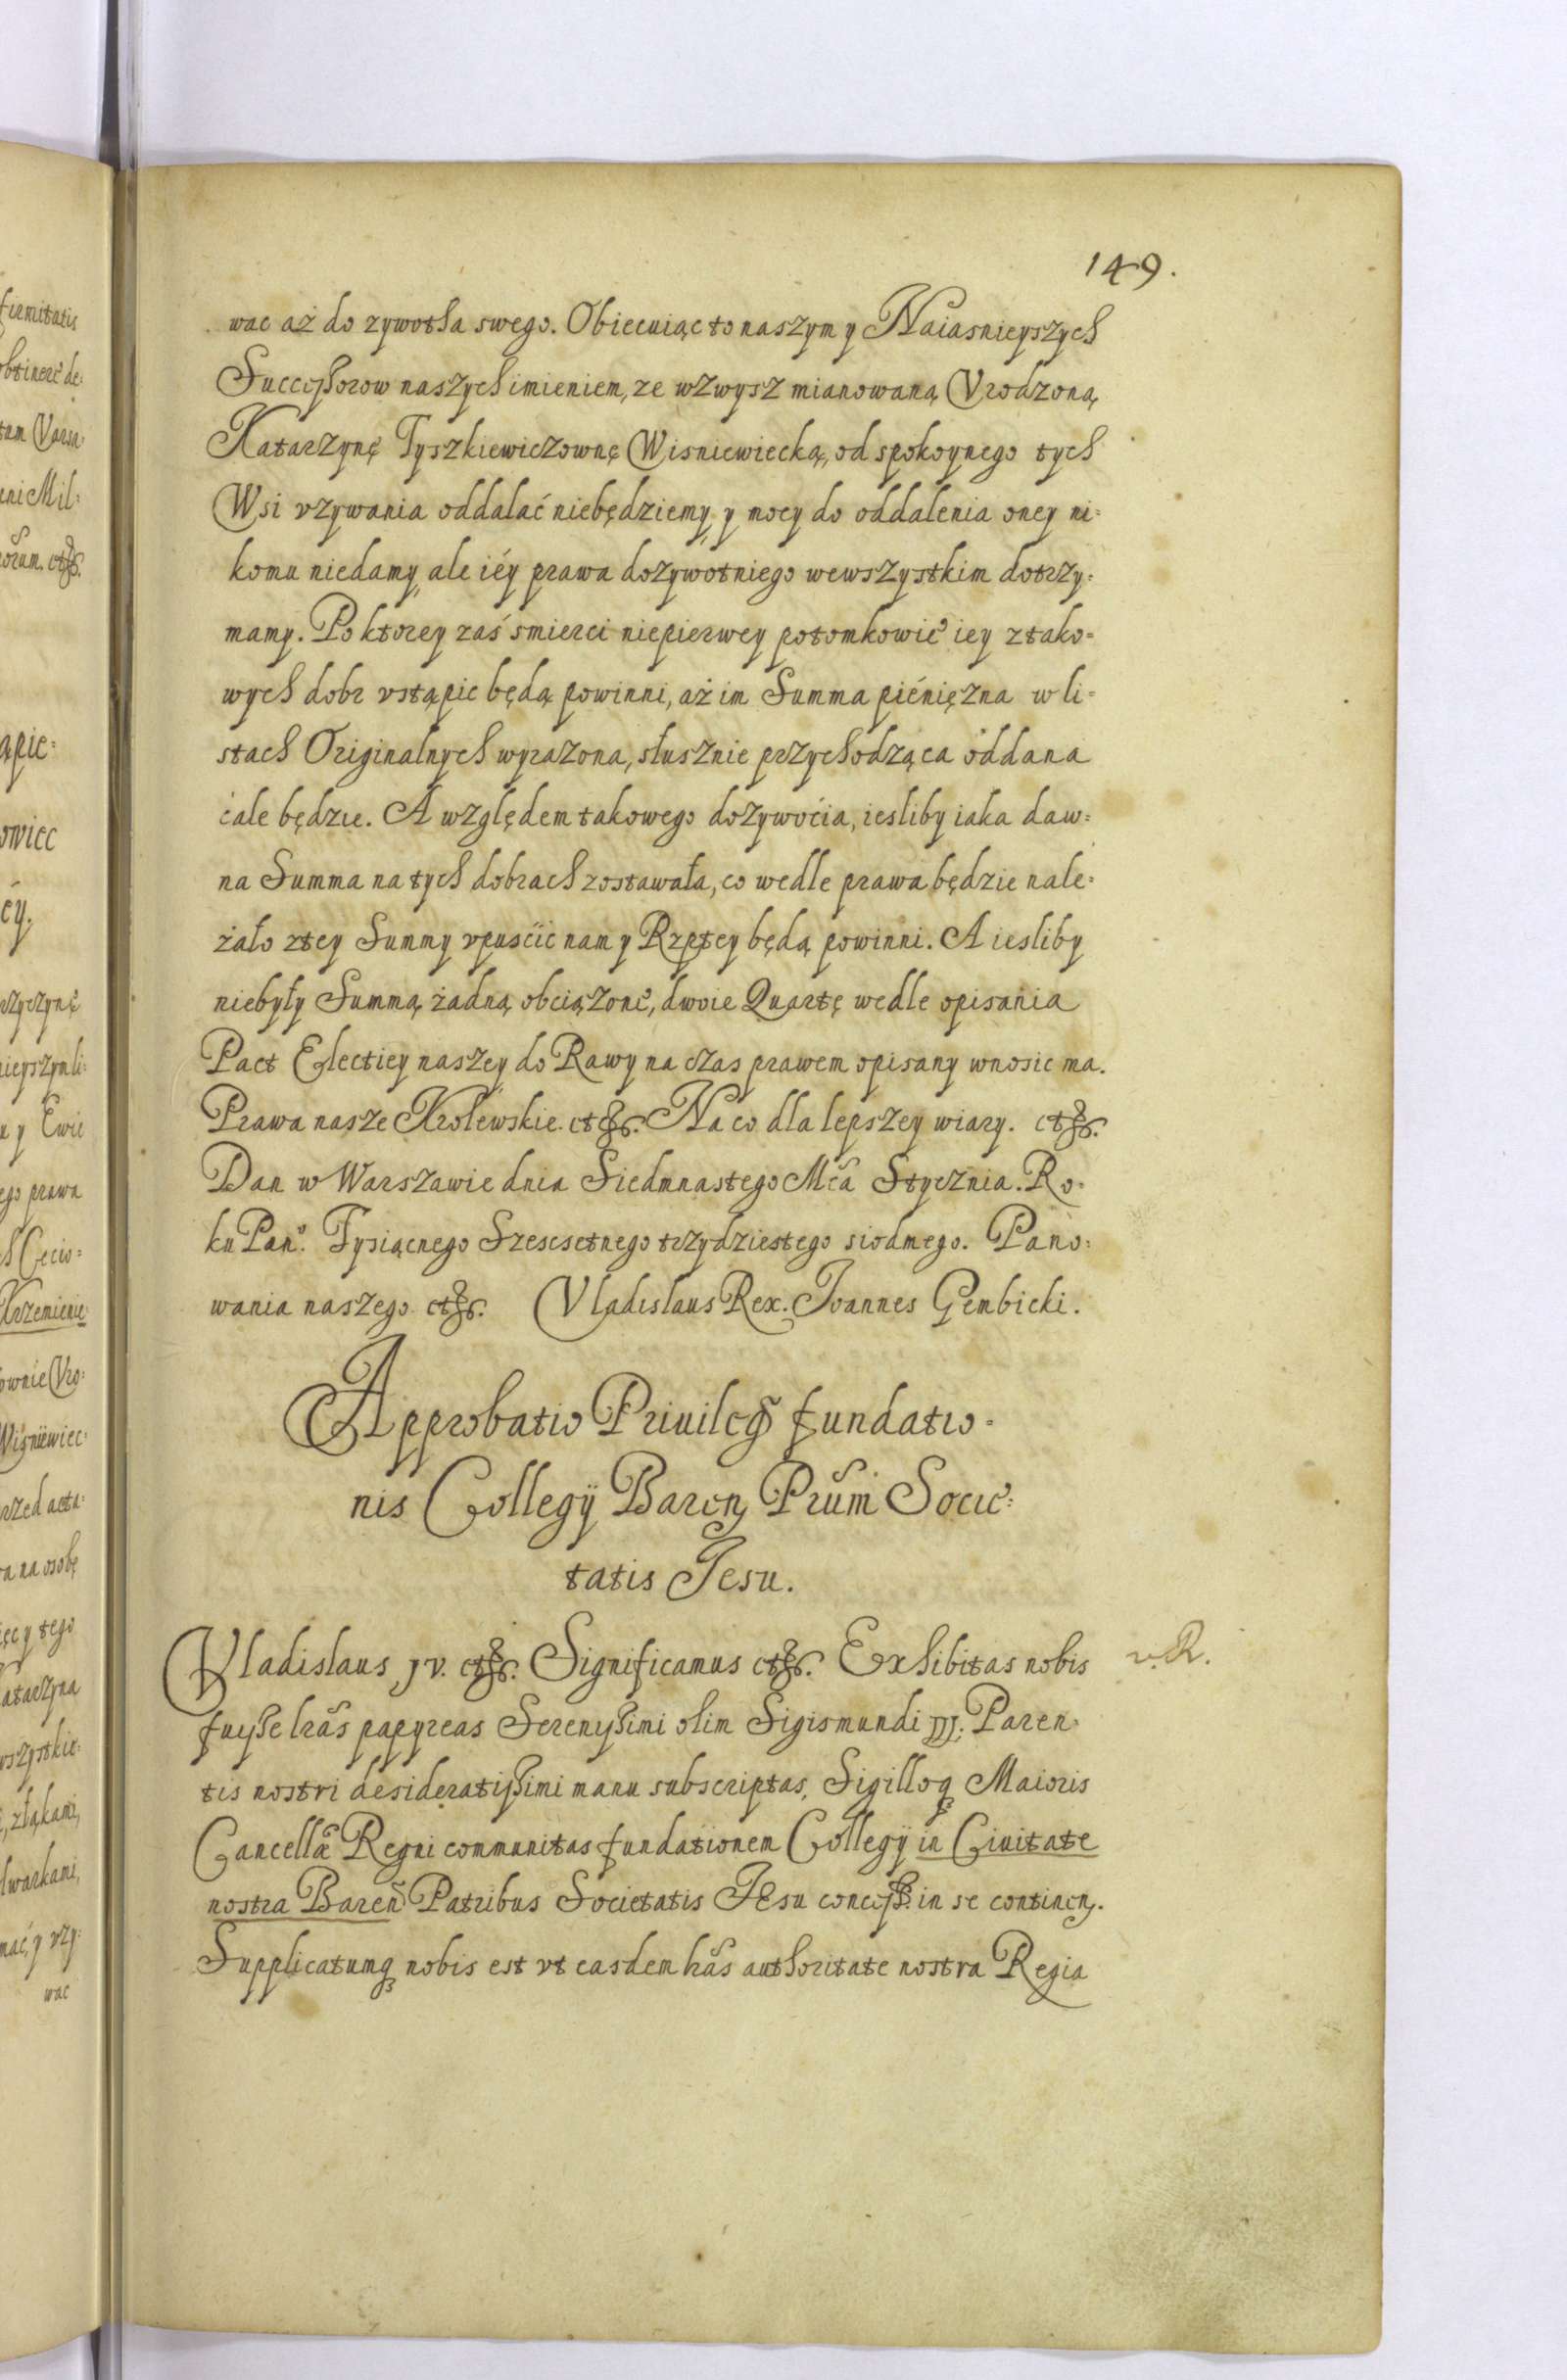 149.
wac aż do zywotha swego. Obiecuiąc to naszym y Naiasnieyszych
Successorow naszych imieniem, ze wzwysz mianowaną Vrodzoną
Katarzynę Tyszkiewiczownę Wisniewiecką, od spokoynego tych
Wsi vzywania oddalać niebędziemy, y mocy do oddalenia oney ni=
komu niedamy, ale iéy prawa dozywotniego wewszystkim dotrzy=
mamy. Po ktorey zaś smierci niepierwey potomkowie iey ztako=
wych dobr vstąpic będą powinni, aż im Summa piéniężna w li=
stach Originalnych wyrazona, słusznie przychodząca oddana
cale będzie. A względem takowego dozywocia, iesliby iaka daw=
na Summa na tych dobrach zostawała, co wedle prawa będzie nale=
żało ztey Summy vpuścic nam y Rzptey będą powinni. A iesliby
niebyły Summą żadną obciązone, dwoie Quartę wedle opisania
Pact Electiey naszey do Rawy na czas prawem opisany wnosic ma.
Prawa nasze Krolewskie. etc. Na co dla lepszey wiary. etc.
Dan w Warszawie dnia Siedmnastego Mca Stycznia. Ro=
ku Pan°. Tysiącnego Szescsetnego trzydziestego siodmego. Pano=
wania naszego etc. Vladislaus Rex. Joannes Gembicki.
Approbatio Priuileg fundatio=
nis Collegÿ Baren Prum Socie=
tatis Jesu.
Vladislaus jv. etc. Significamus etc. Exhibitas nobis
v. R.
fuisse lras papyreas Serenissimi olim Sigismundi III. Paren=
tis nostri desideratissimi manu subscriptas, Sigilloq Maioris
Cancellæ Regni communitas fundationem Collegÿ in Ciuitate
nostra Baren Patribus Societatis JEsu concess. in se continen.
Supplicatumq nobis est vt easdem lras authoritate nostra Regia